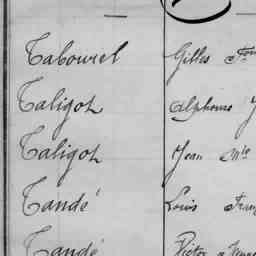 Tabourel Gilles
Taligot Alphonse J
Taligot Jean Mie
Tandé Louis Franç
Tandé Victor